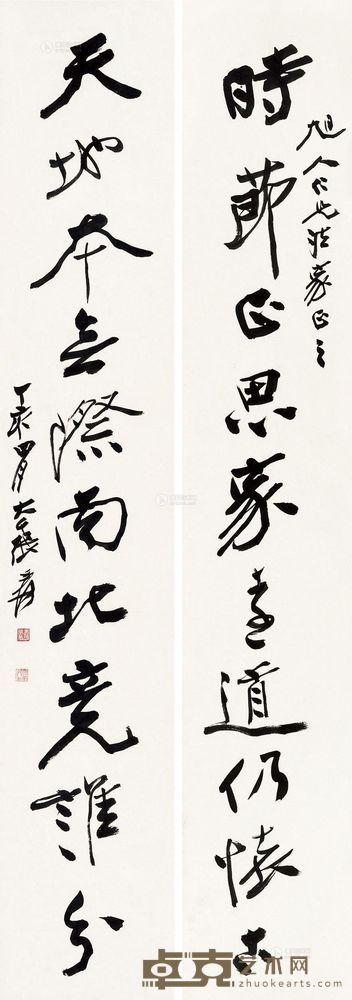 旭人仁兄法家正之
時節正思家遠道仍懷古
天地本無際南北竟誰分
丁亥四月大千張爰
卓克艺术网
zhuokearts.com